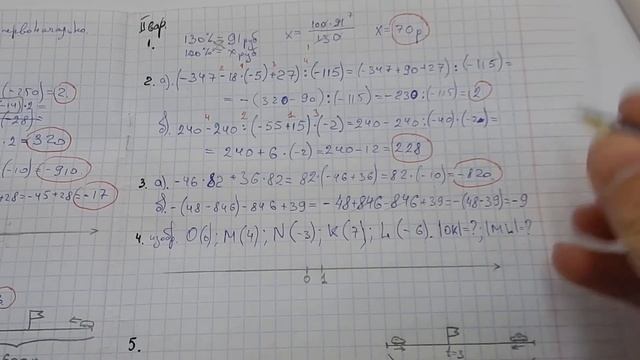 первоначально.
-250)=2.
-14)·2=
(-28)=
·2=320
·(-10)=-910
+28=-45+28=-17
II вар.
1. 130%=91 руб
100%=x руб
x= 100·91 / 130
x=70р
2. а).(-347-18·(-5)+27):(-115)=(-347+90+27):(-115)=
=-(320-90):(-115)=-230:(-115)=2
б). 240-240:(-55+15)·(-2)=240-240:(-40)·(-2)=
=240+6·(-2)=240-12=228
3. а). -46·82+36·82=82·(-46+36)=82·(-10)=-820
б).-(48-846)-846+39=-48+846-846+39=-(48-39)=-9
4. изобр. O(6); M(4); N(-3); K(7); L(-6). |OK|=?; |ML|=?
0 1
5.
t=3